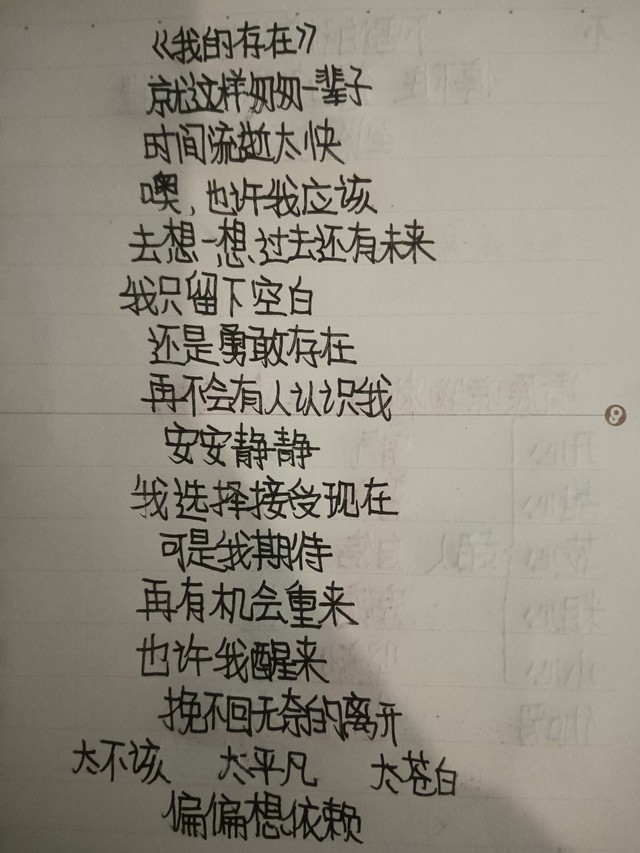 《我的存在》
就这样匆匆一辈子
时间流逝太快
噢，也许我应该
去想一想过去还有未来
我只留下空白
还是勇敢存在
再不会有人认识我
安安静静
我选择接受现在
可是我期待
再有机会重来
也许我醒来
挽不回无奈的离开
太不该 太平凡 太苍白
偏偏想依赖